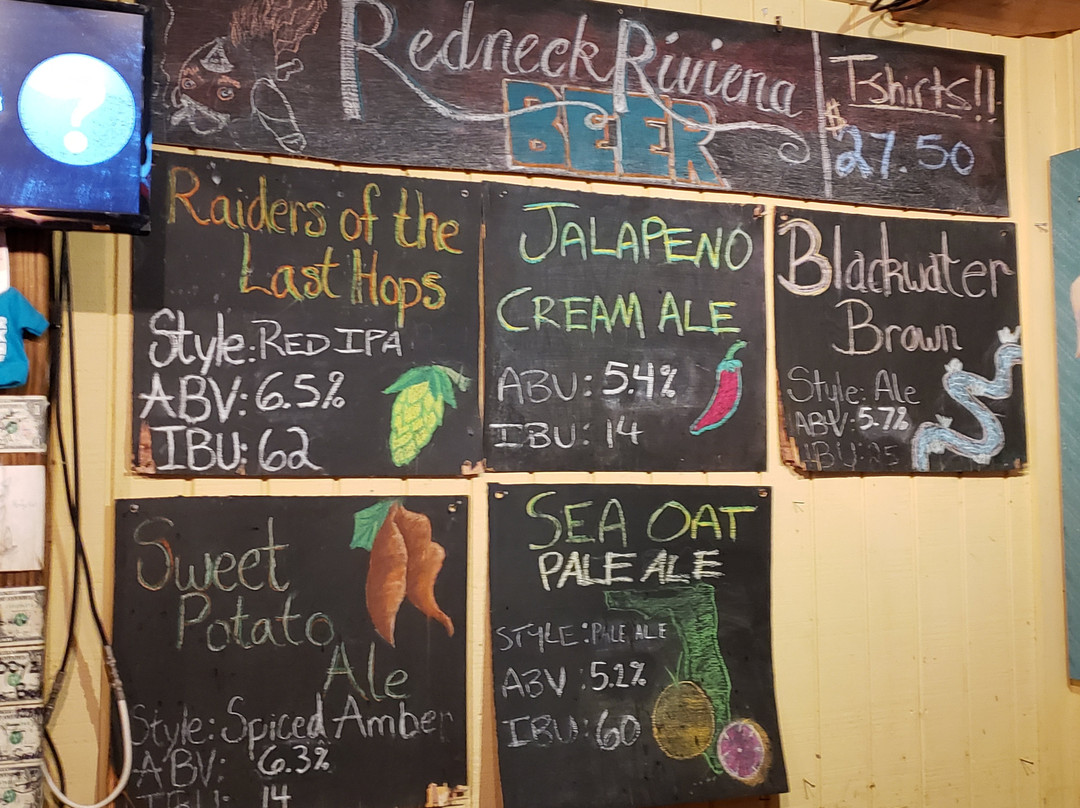 Redneck Riviera
BEER
T-shirts!!
$27.50
Raiders of the
Last Hops
Style: RED IPA
ABV: 6.5%
IBU: 62
JALAPENO
CREAM ALE
ABV: 5.4%
IBU: 14
Blackwater
Brown
Style: Ale
ABV: 5.7%
IBU: 25
Sweet
Potato
Ale
Style: Spiced Amber
ABV: 6.3%
IBU: 14
SEA OAT
PALE ALE
STYLE: PALE ALE
ABV: 5.2%
IBU: 60
?